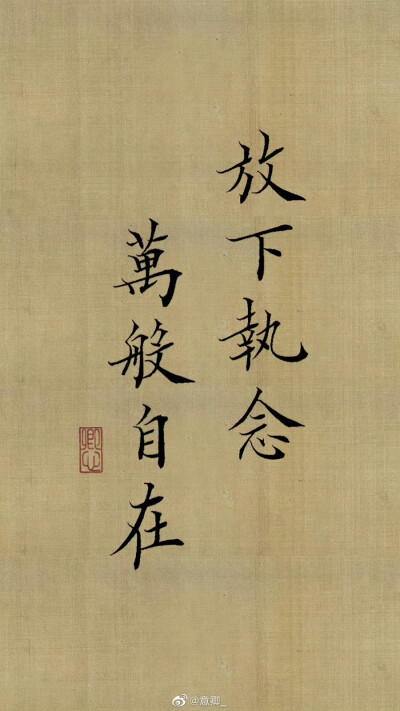 放下執念
萬般自在
@意卿_